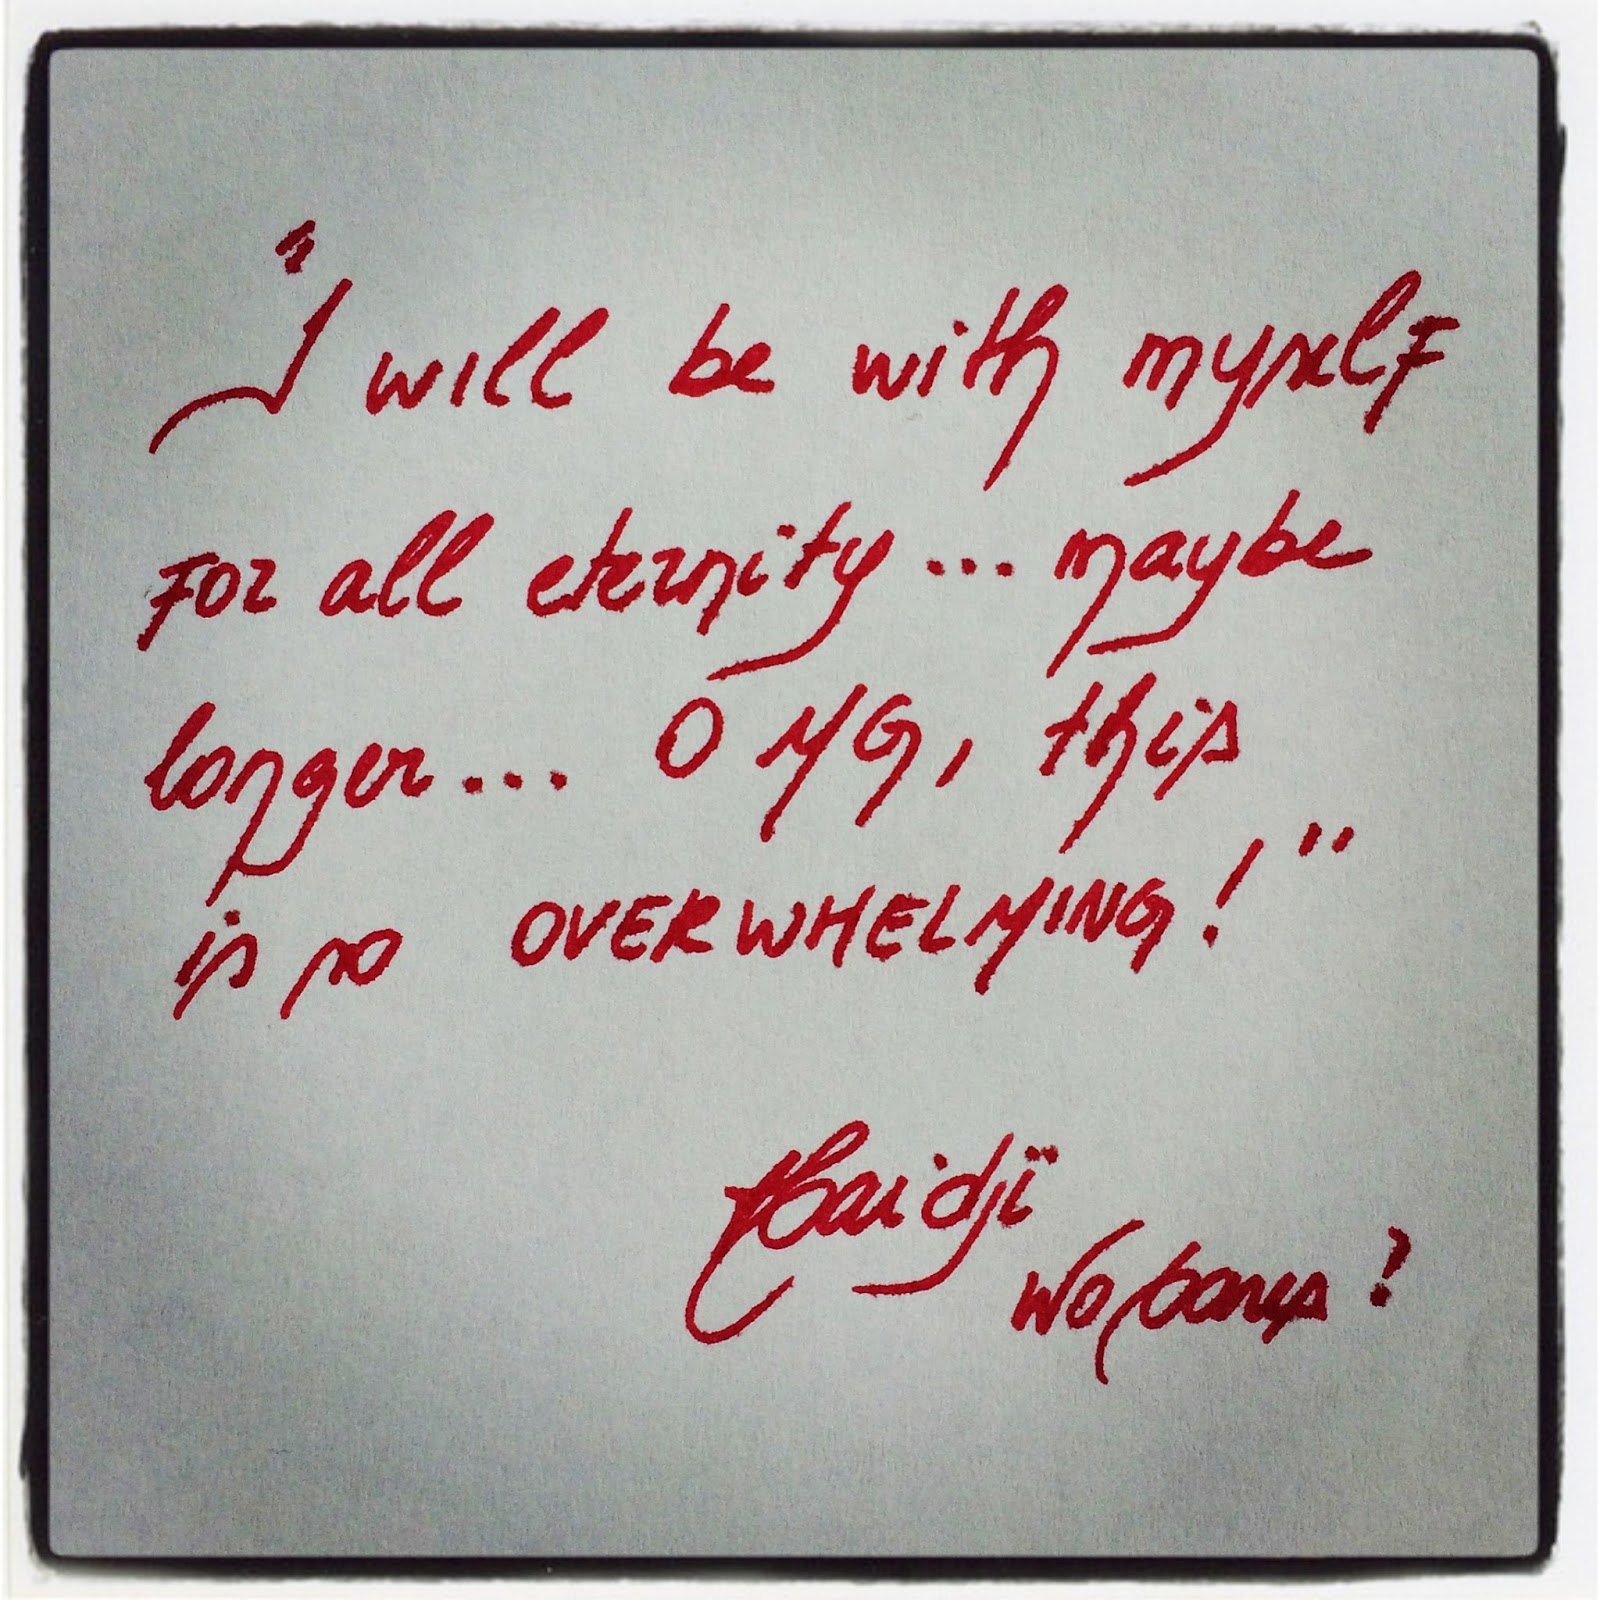 "I will be with myself
for all eternity... maybe
longer... OMG, this
is so OVERWHELMING!"
Haidji
who cares?